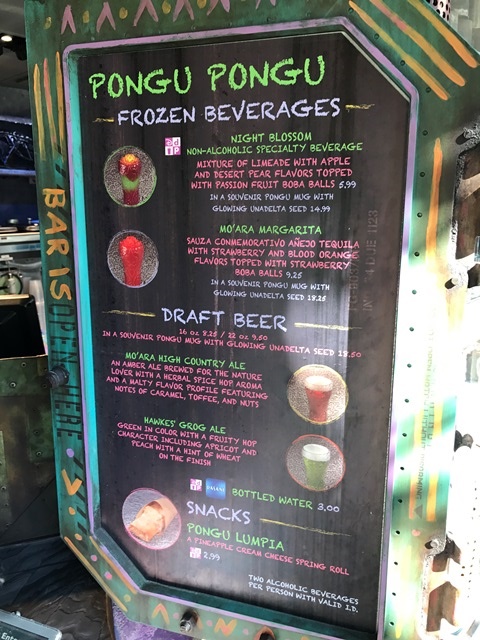 PONGU PONGU
FROZEN BEVERAGES
NIGHT BLOSSOM
NON-ALCOHOLIC SPECIALTY BEVERAGE
MIXTURE OF LIMEADE WITH APPLE
AND DESERT PEAR FLAVORS TOPPED
WITH PASSION FRUIT BOBA BALLS 5.99
IN A SOUVENIR PONGU MUG WITH
GLOWING UNADELTA SEED 14.99
MO'ARA MARGARITA
SAUZA CONMEMORATIVO AÑEJO TEQUILA
WITH STRAWBERRY AND BLOOD ORANGE
FLAVORS TOPPED WITH STRAWBERRY
BOBA BALLS 9.25
IN A SOUVENIR PONGU MUG WITH
GLOWING UNADELTA SEED 18.25
DRAFT BEER
16 oz 8.25 / 22 oz 9.50
IN A SOUVENIR PONGU MUG WITH GLOWING UNADELTA SEED 18.50
MO'ARA HIGH COUNTRY ALE
AN AMBER ALE BREWED FOR THE NATURE
LOVER WITH A HERBAL SPICE HOP AROMA
AND A MALTY FLAVOR PROFILE FEATURING
NOTES OF CARAMEL, TOFFEE, AND NUTS
HAWKES' GROG ALE
GREEN IN COLOR WITH A FRUITY HOP
CHARACTER INCLUDING APRICOT AND
PEACH WITH A HINT OF WHEAT
ON THE FINISH
BOTTLED WATER 3.00
SNACKS
PONGU LUMPIA
A PINEAPPLE CREAM CHEESE SPRING ROLL
2.99
TWO ALCOHOLIC BEVERAGES
PER PERSON WITH VALID I.D.
BAR IS OPEN HERE